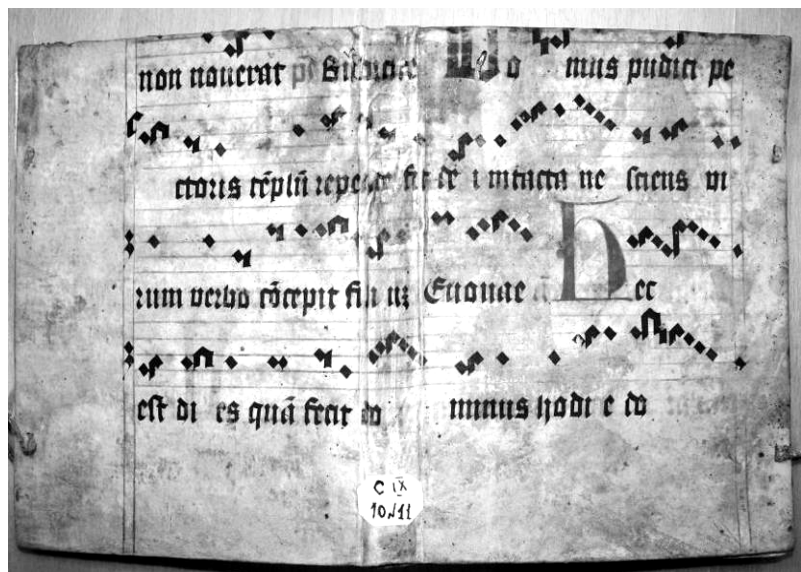 non nouerat Do mus pudici pe
ctoris tēplū repente fit de i intacta ne sciens vi
rum verbo cōcepit fili uȝ Euouae Hec
est di es quā fecit do minus hodi e do
C IX
10/11